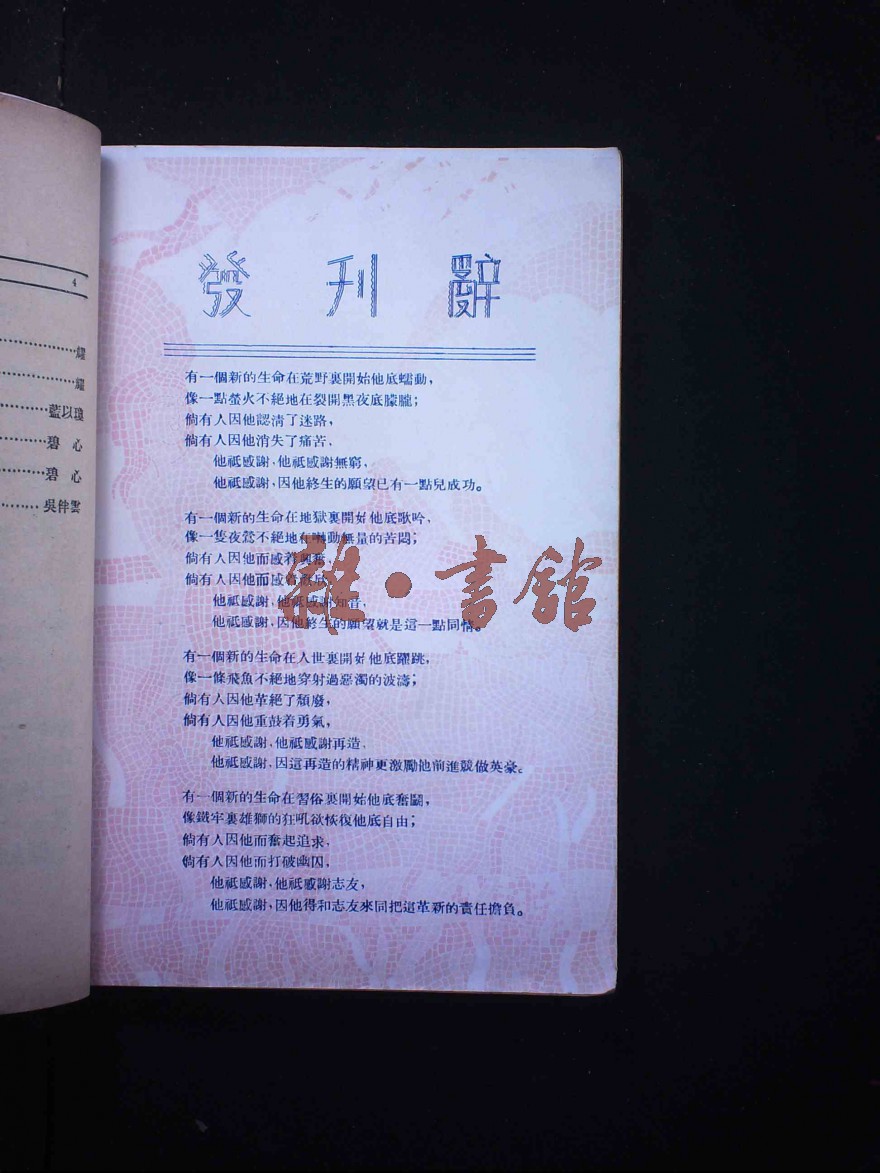 4
耀
耀
藍以瓊
碧心
碧心
吳伴雲
發刊辭
有一個新的生命在荒野裏開始他底蠕動，
像一點螢火不絕地在裂開黑夜底朦朧；
倘有人因他認清了迷路，
倘有人因他消失了痛苦，
他祗感謝，他祗感謝無窮，
他祗感謝，因他終生的願望已有一點兒成功。
有一個新的生命在地獄裏開始他底歌吟，
像一隻夜鶯不絕地在囀動無量的苦悶；
倘有人因他而感着興奮，
倘有人因他而感着
他祗感謝，他祗感謝知音，
他祗感謝，因他終生的願望就是這一點同情。
有一個新的生命在人世裏開始他底躍跳，
像一條飛魚不絕地穿射過惡濁的波濤；
倘有人因他革絕了頹廢，
倘有人因他重鼓着勇氣，
他祗感謝，他祗感謝再造，
他祗感謝，因這再造的精神更激勵他前進競做英豪。
有一個新的生命在習俗裏開始他底奮鬭，
像鐵牢裏雄獅的狂吼欲恢復他底自由；
倘有人因他而奮起追求，
倘有人因他而打破幽囚，
他祗感謝，他祗感謝志友，
他祗感謝，因他得和志友來同把這革新的責任擔負。
雜·書館